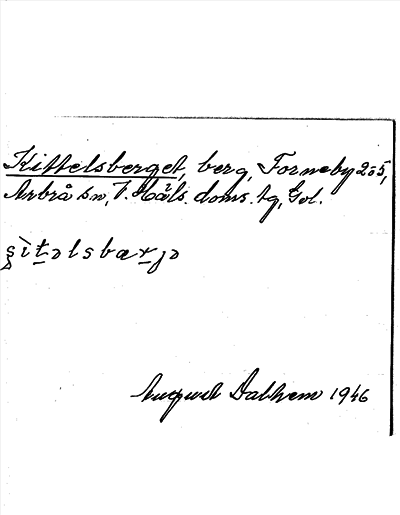 Kittelsberget, berg, Forneby 2o5,
Arbrå sn, V. Häls. doms. tg, Gol.
ʂìt̠əlsbær̠jə
August Dalhem 1946